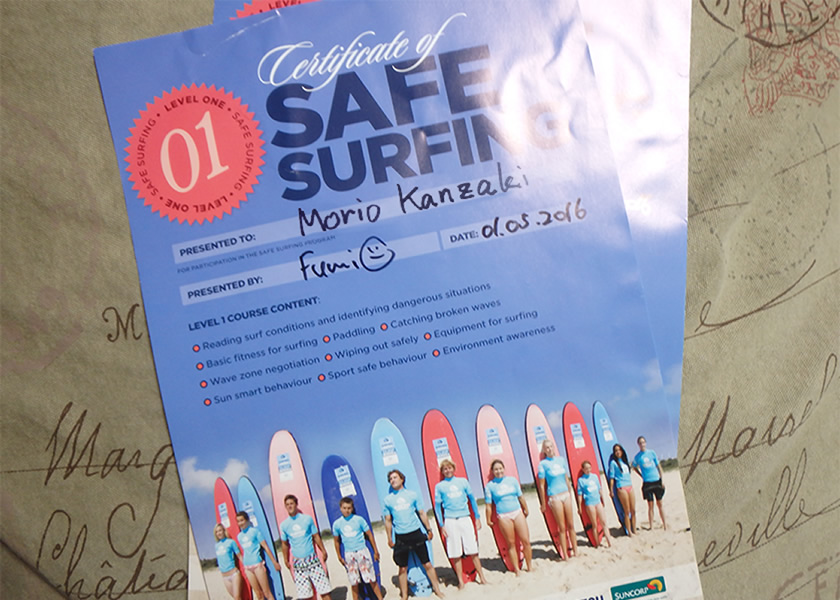 Certificate of
SAFE
SURFING
LEVEL ONE • SAFE SURFING • LEVEL ONE • SAFE SURFING •
01
PRESENTED TO: Morio Kanzaki
FOR PARTICIPATION IN THE SAFE SURFING PROGRAM
PRESENTED BY: Fumi DATE: 01.05.2016
LEVEL 1 COURSE CONTENT:
Reading surf conditions and identifying dangerous situations
Basic fitness for surfing Paddling Catching broken waves
Wave zone negotiation Wiping out safely Equipment for surfing
Sun smart behaviour Sport safe behaviour Environment awareness
SUNCORP